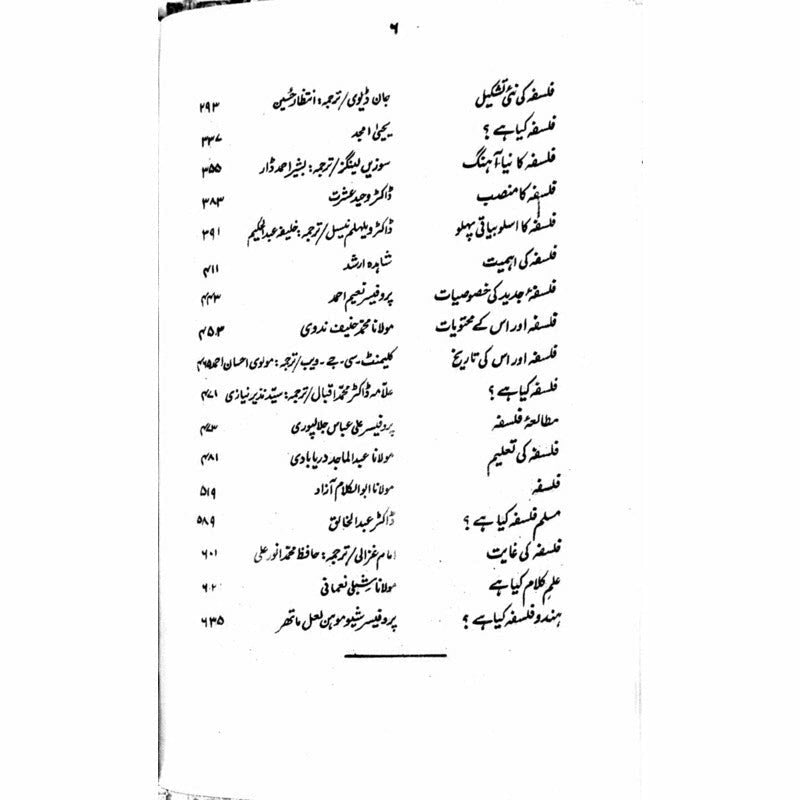 ۶
فلسفہ کی نئی تشکیل جان ڈیوی / ترجمہ: انتظار حسین ۲۹۳
فلسفہ کیا ہے؟ یحییٰ امجد ۳۳۷
فلسفہ کا نیا آہنگ سوزین لینگر / ترجمہ: بشیر احمد ڈار ۳۵۵
فلسفہ کا منصب ڈاکٹر وحید عشرت ۳۸۳
فلسفہ کا اسلوبیاتی پہلو ڈاکٹر ویلہلم نیسل / ترجمہ: خلیفہ عبدالحکیم ۳۹۱
فلسفہ کی اہمیت شاہدہ ارشد ۴۱۱
فلسفۂ جدید کی خصوصیات پروفیسر نعیم احمد ۴۴۳
فلسفہ اور اس کے محتویات مولانا محمد حنیف ندوی ۴۵۳
فلسفہ اور اس کی تاریخ کلیمنٹ۔سی۔جے۔ویب / ترجمہ: مولوی احسان احمد ۴۶۵
فلسفہ کیا ہے؟ علامہ ڈاکٹر محمد اقبال / ترجمہ: سید نذیر نیازی ۴۷۱
مطالعۂ فلسفہ پروفیسر علی عباس جلالپوری ۴۷۳
فلسفہ کی تعلیم مولانا عبدالماجد دریابادی ۴۸۱
فلسفہ مولانا ابوالکلام آزاد ۵۱۹
مسلم فلسفہ کیا ہے؟ ڈاکٹر عبدالخالق ۵۸۹
فلسفہ کی غایت امام غزالی / ترجمہ: حافظ محمد انور علی ۶۰۱
علم کلام کیا ہے مولانا شبلی نعمانی ۶۲۰
ہندو فلسفہ کیا ہے؟ پروفیسر شیو موہن لعل ماتھر ۶۳۵